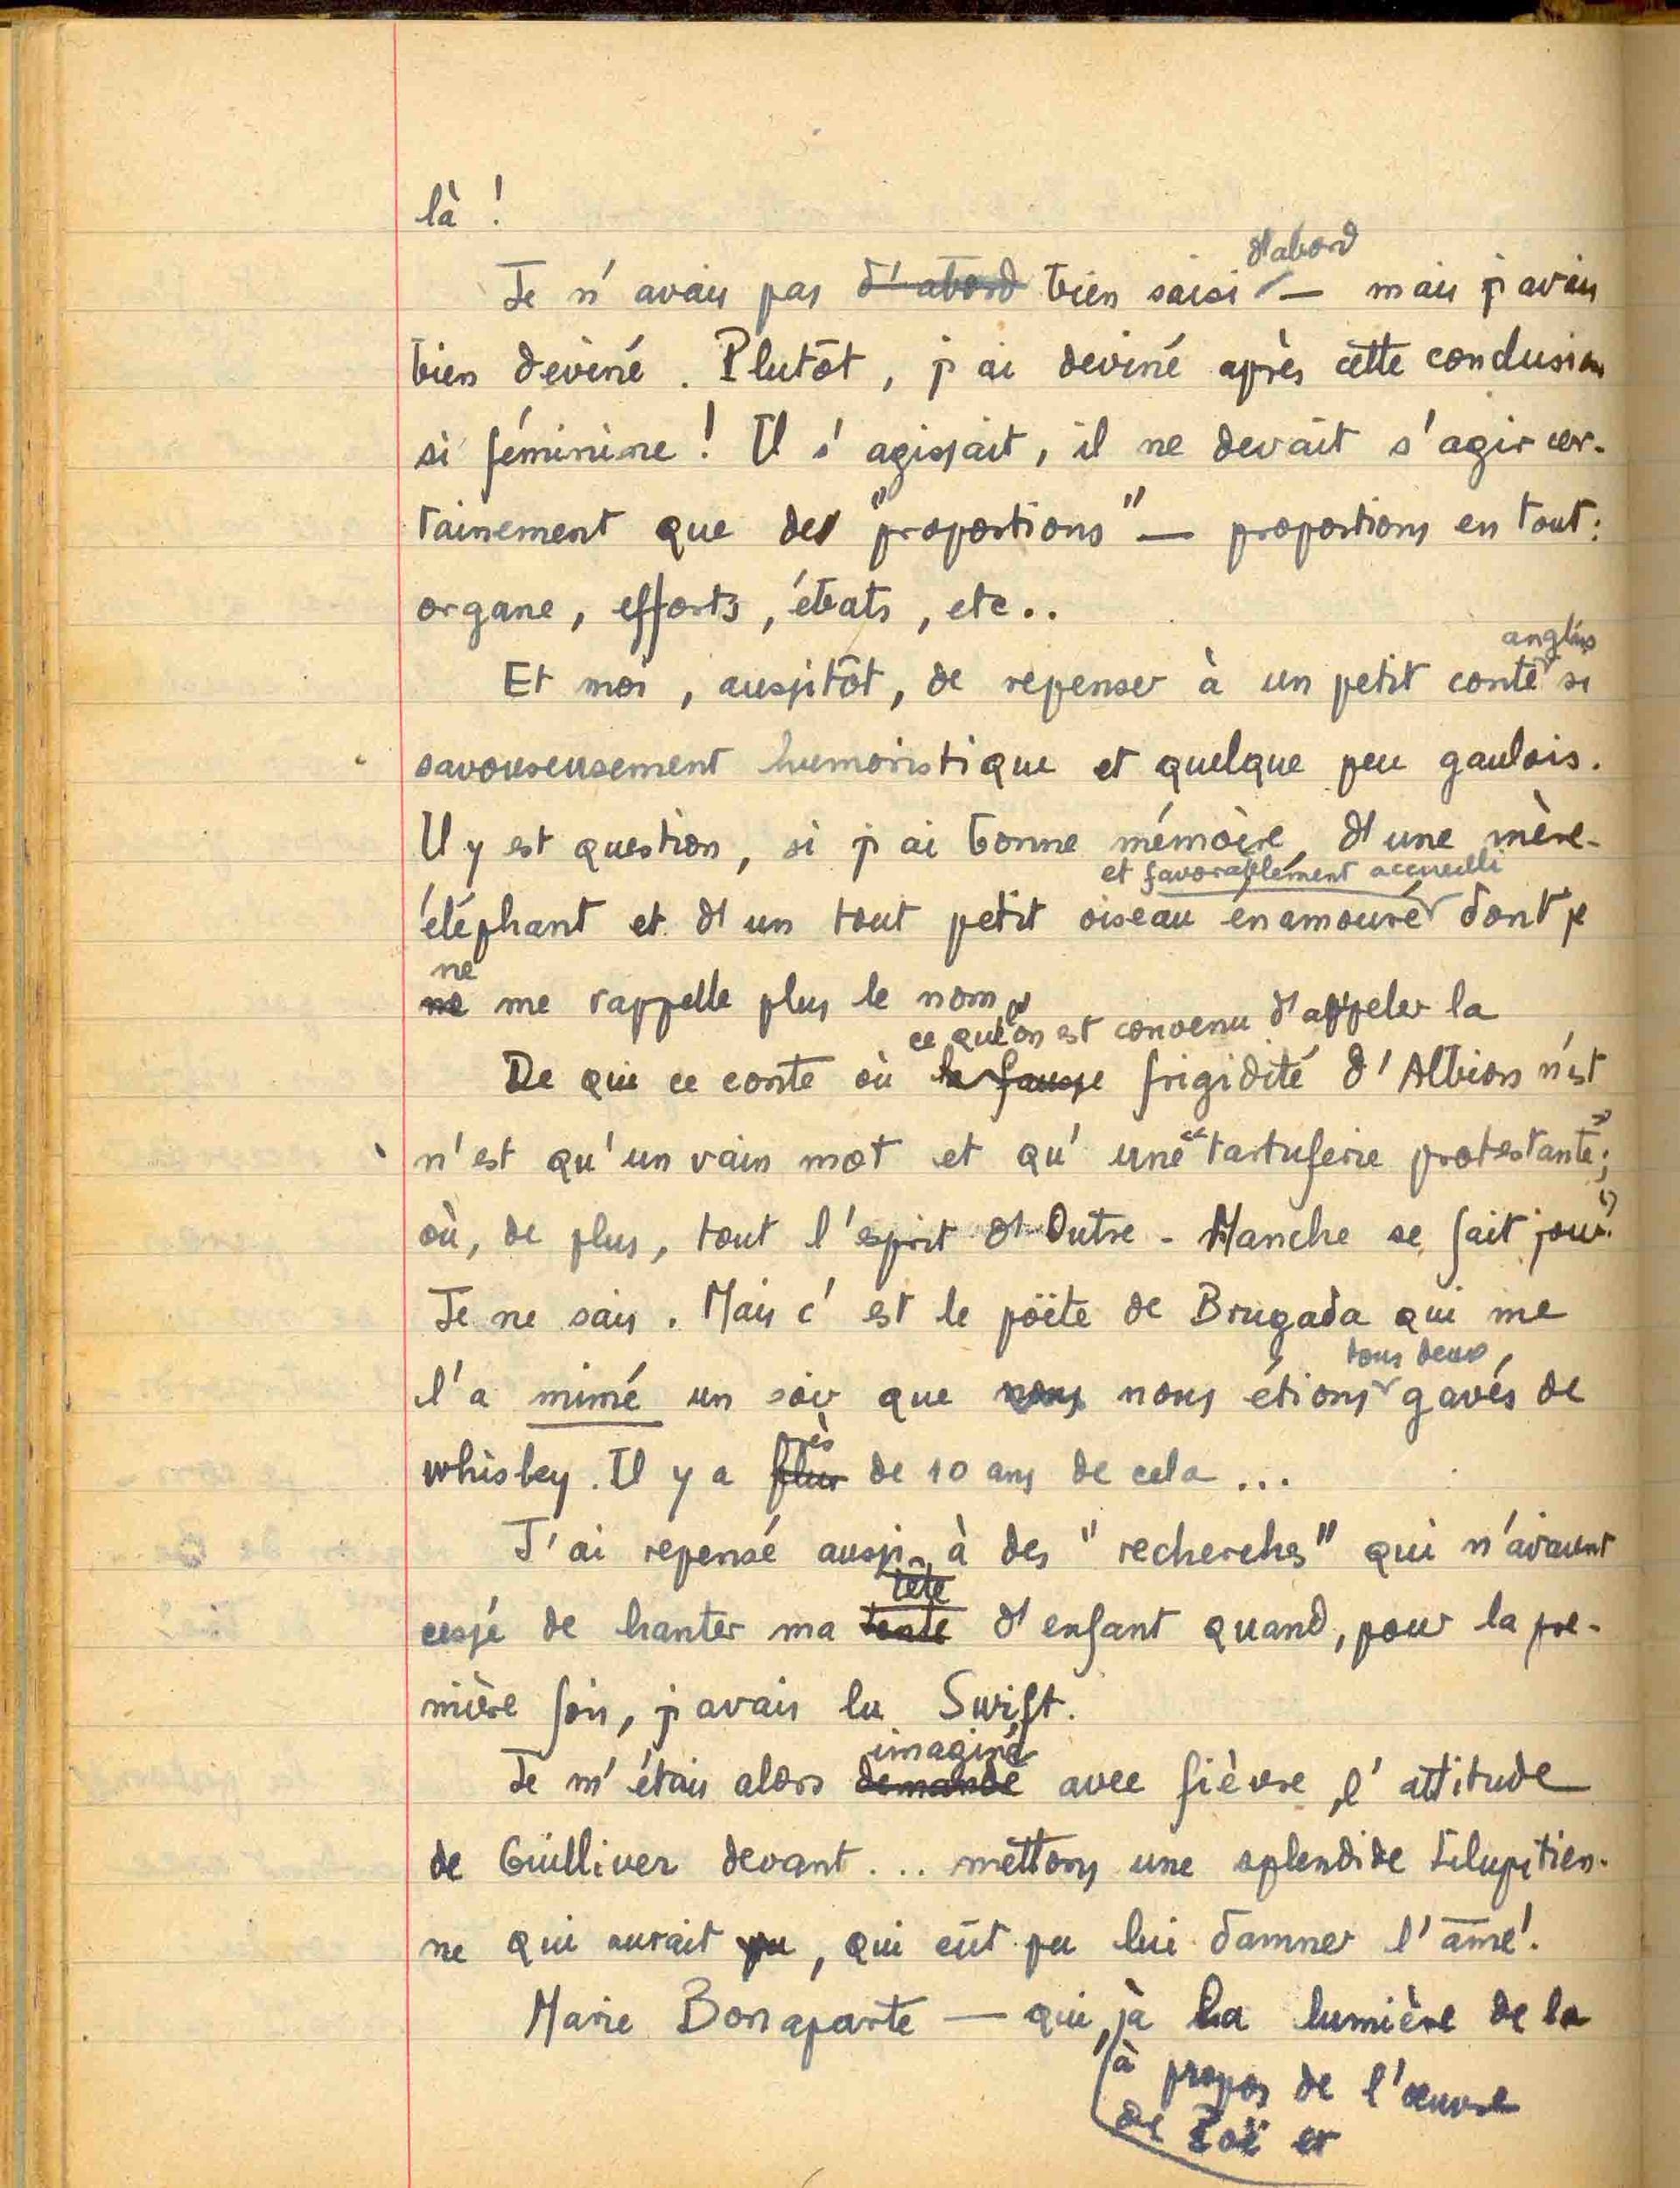 là !
d'abord
Je n'avais pas d'abord bien saisi — mais j'avais
bien deviné. Plutôt, j'ai deviné après cette conclusion
si féminine ! Il s'agissait, il ne devait s'agir cer-
tainement que de "proportions" — proportions en tout :
organe, efforts, ébats, etc..
anglais
Et moi, aussitôt, de repenser à un petit conte si
savoureusement humoristique et quelque peu gaulois.
Il y est question, si j'ai bonne mémoire, d'une mère-
et favorablement accueilli
éléphant et d'un tout petit oiseau énamouré dont je
ne
ne me rappelle plus le nom.
ce qu'on est convenu d'appeler la
De qui ce conte où la fausse frigidité d'Albion n'est
n'est qu'un vain mot et qu'une "tartuferie protestante";
où, de plus, tout l'esprit d'Outre-Manche se fait jour ?
Je ne sais. Mais c'est le poëte de Brugada qui me
tous deux,
l'a mimé un soir que nous nous étions gavés de
whisky. Il y a
près
plus de 10 ans de cela ...
J'ai repensé aussi, à des "recherches" qui n'avaient
tête
cessé de hanter ma tente d'enfant quand, pour la pre-
mière fois, j'avais lu Swift.
imaginé
Je m'étais alors demandé avec fièvre, l'attitude
de Gulliver devant ... mettons une splendide Lilupitien-
ne qui aurait pu, qui eût pu lui damner l'âme !
Marie Bonaparte — qui, à la lumière de la
à propos de l'œuvre
de Poë et